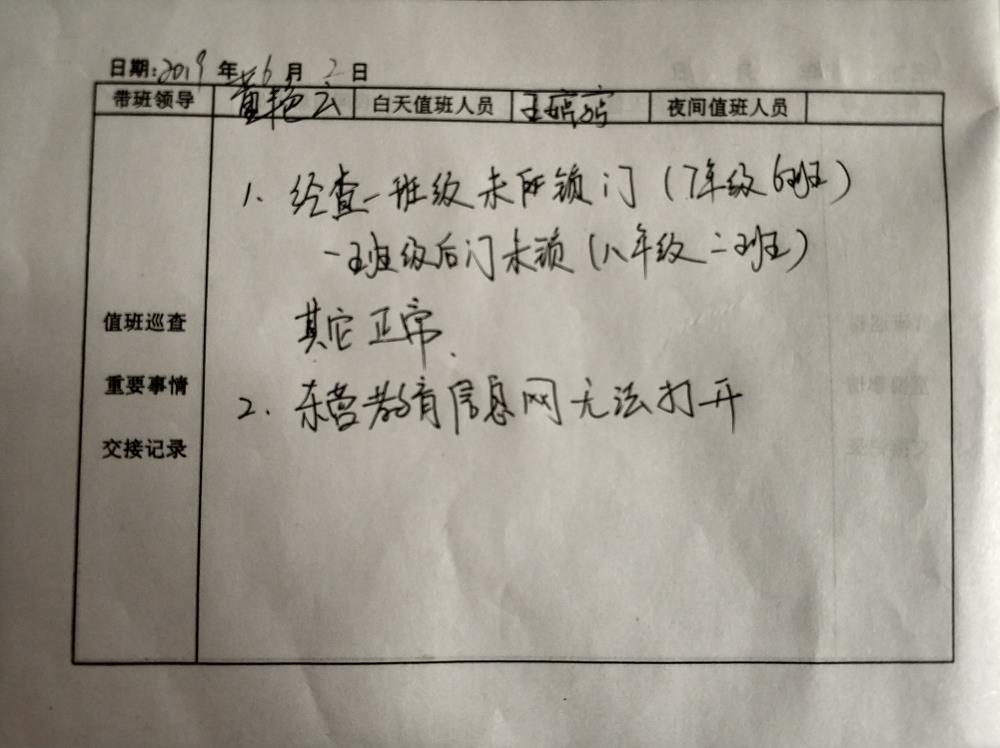 日期:2019年6月2日
带班领导 黄艳云 白天值班人员 王 夜间值班人员
1. 经查一班级未所锁门(7年级6班)
一班级后门未锁(八年级二班)
值班巡查 其它正常.
重要事情
2. 东营教育信息网无法打开
交接记录